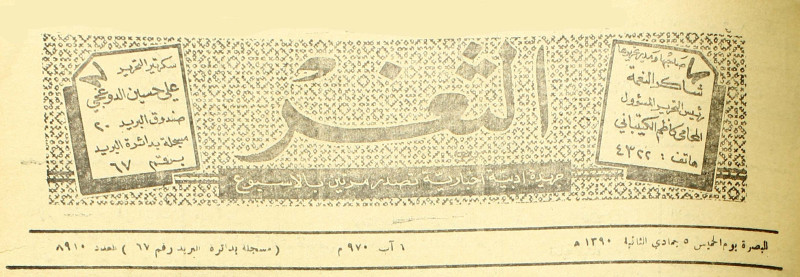 الثغر
صاحبها ومدير تحريرها
شاكر النعمة
رئيس التحرير المسؤول
المحامي كاظم الكيتباني
هاتف : ٤٣٢٢
سكرتير التحرير
علي حسين الدوغجي
صندوق البريد ٢٠
مسجلة بدائرة البريد
برقم ٦٧
جريدة ادبية اخبارية تصدر مرتين بالاسبوع
البصرة يوم الخميس ٥ جمادي الثانية ١٣٩٠ ه ٦ آب ٩٧٠ م ( مسجلة بدائرة البريد رقم ٦٧ ) العدد ٨٩١٠